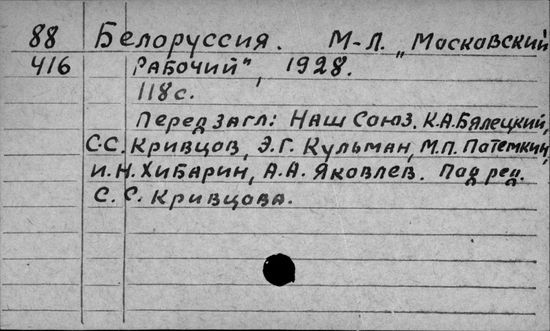 88 Белоруссия. М-Л. „Московский
416 Рабочий", 1928.
118с.
Перед загл: Наш Союз. К.А.Бялецкий,
С.С. Кривцов, Э.Г. Кульман, М.П. Потемкин,
И.Н. Хибарин, А.А. Яковлев. Под ред.
С. С. Кривцова.